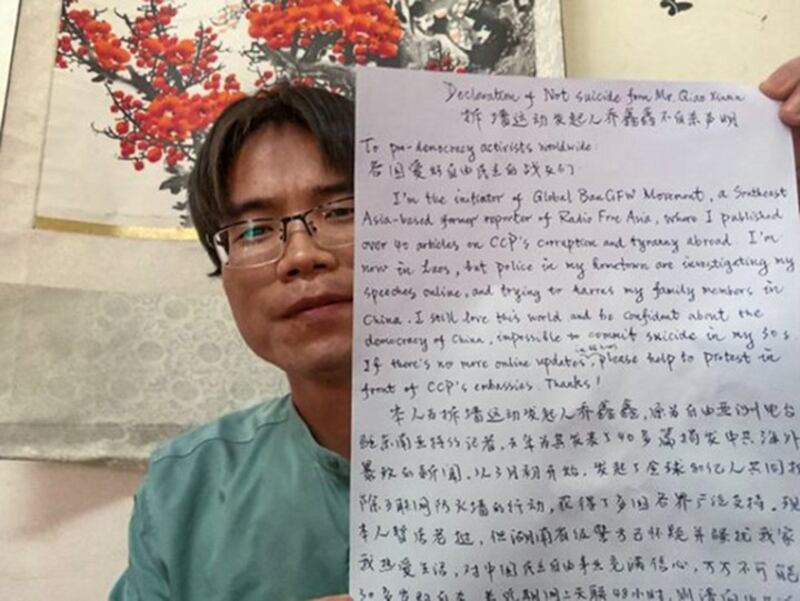 Declaration of Not suicide from Mr. Qiao Xinxin
拆墙运动发起人乔鑫鑫不自杀声明
To pro-democracy activists worldwide:
各国爱好自由民主的战友们:
I'm the initiator of Global BanGFW Movement, a Southeast
Asia-based former reporter of Radio Free Asia, where I published
over 40 articles on CCP's corruption and tyranny abroad. I'm
now in Laos, but police in my hometown are investigating my
speeches online, and trying to harres my family members in
China. I still love this world and be confident about the
democracy of China, impossible to commit suicide in my 30s.
If there's no more online updates, please help to protest in
front of CCP's embassies. Thanks!
本人为拆墙运动发起人乔鑫鑫,原为自由亚洲电台
驻东南亚特约记者,去年为其发表了40多篇揭发中共海外
暴政的新闻。从3月初开始,发起了全球 亿人共同拆
除互联网防火墙的行动,获得了多国各界广泛支持。现
本人暂居老挝,但湖南省级警方已怀疑并骚扰我家
我热爱生活,对中国民主自由事业充满信心,万万不可能
30多岁时自杀。若我推网上失联48小时,则请